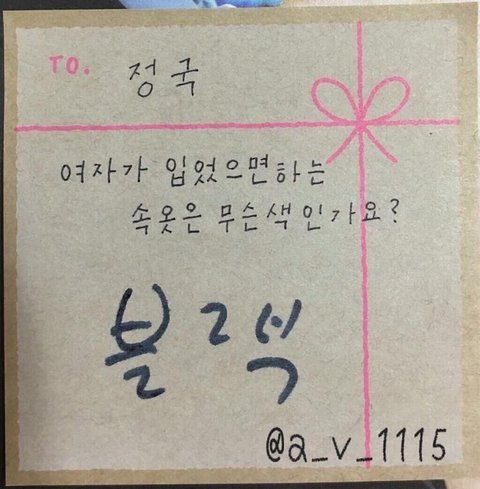 TO. 정국
여자가 입었으면하는
속옷은 무슨색인가요?
블랙
@a_v_1115